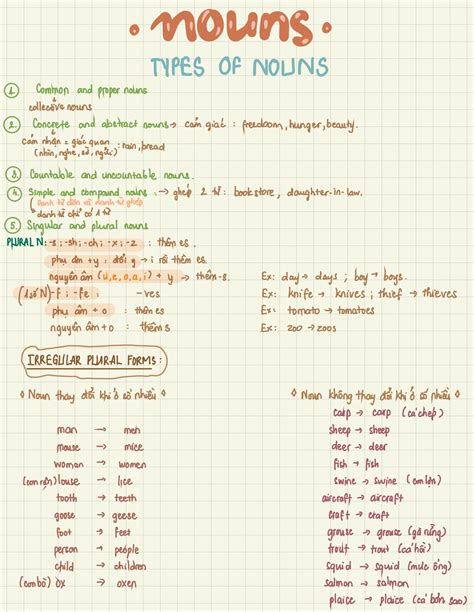 • nouns •
TYPES OF NOUNS
① Common and proper nouns
collective nouns
② Concrete and abstract nouns → cảm giác : freedoom, hunger, beauty.
cảm nhận = giác quan : rain, bread
(nhìn, nghe, sờ, ngửi)
③ Countable and uncountable nouns.
④ Simple and compound nouns : → ghép 2 từ : bookstore, daughter-in-law.
Danh từ đơn và danh từ ghép
danh từ chỉ có 1 từ
⑤ Singular and plural nouns
PLURAL N: -s ; -sh ; -ch ; -x ; -z : thêm es.
phụ âm + y : đổi y → i rồi thêm es.
nguyên âm (u, e, o, a, i) + y → thêm -s. Ex: day → days ; boy → boys.
(1 số N) -f ; -fe : -ves Ex: knife → knives ; thief → thieves
phụ âm + o : thêm es Ex: tomato → tomatoes
nguyên âm + o : thêm s Ex: zoo → zoos
IRREGULAR PLURAL FORMS :
◊ Noun thay đổi khi ở số nhiều ◊
man → men
mouse → mice
woman → women
(con rận) louse → lice
tooth → teeth
goose → geese
foot → feet
person → people
child → children
(con bò) ox → oxen
◊ Noun không thay đổi khi ở số nhiều ◊
carp → carp (cá chép)
sheep → sheep
deer → deer
fish → fish
swine → swine (con lợn)
aircraft → aircraft
craft → craft
grouse → grouse (gà rừng)
trout → trout (cá hồi)
squid → squid (mực ống)
salmon → salmon
plaice → plaice (cá bơn sao)